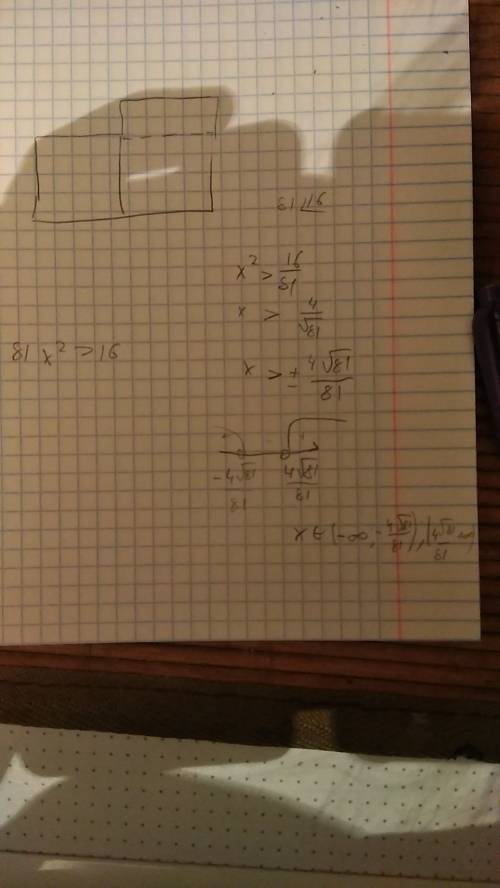 81 16
x² > 16/81
x > 4/√81
81 x² > 16
x > ± 4√81/81
-4√81/81 4√81/81
x ∈ (-∞, -4√81/81), (4√81/81 ∞)